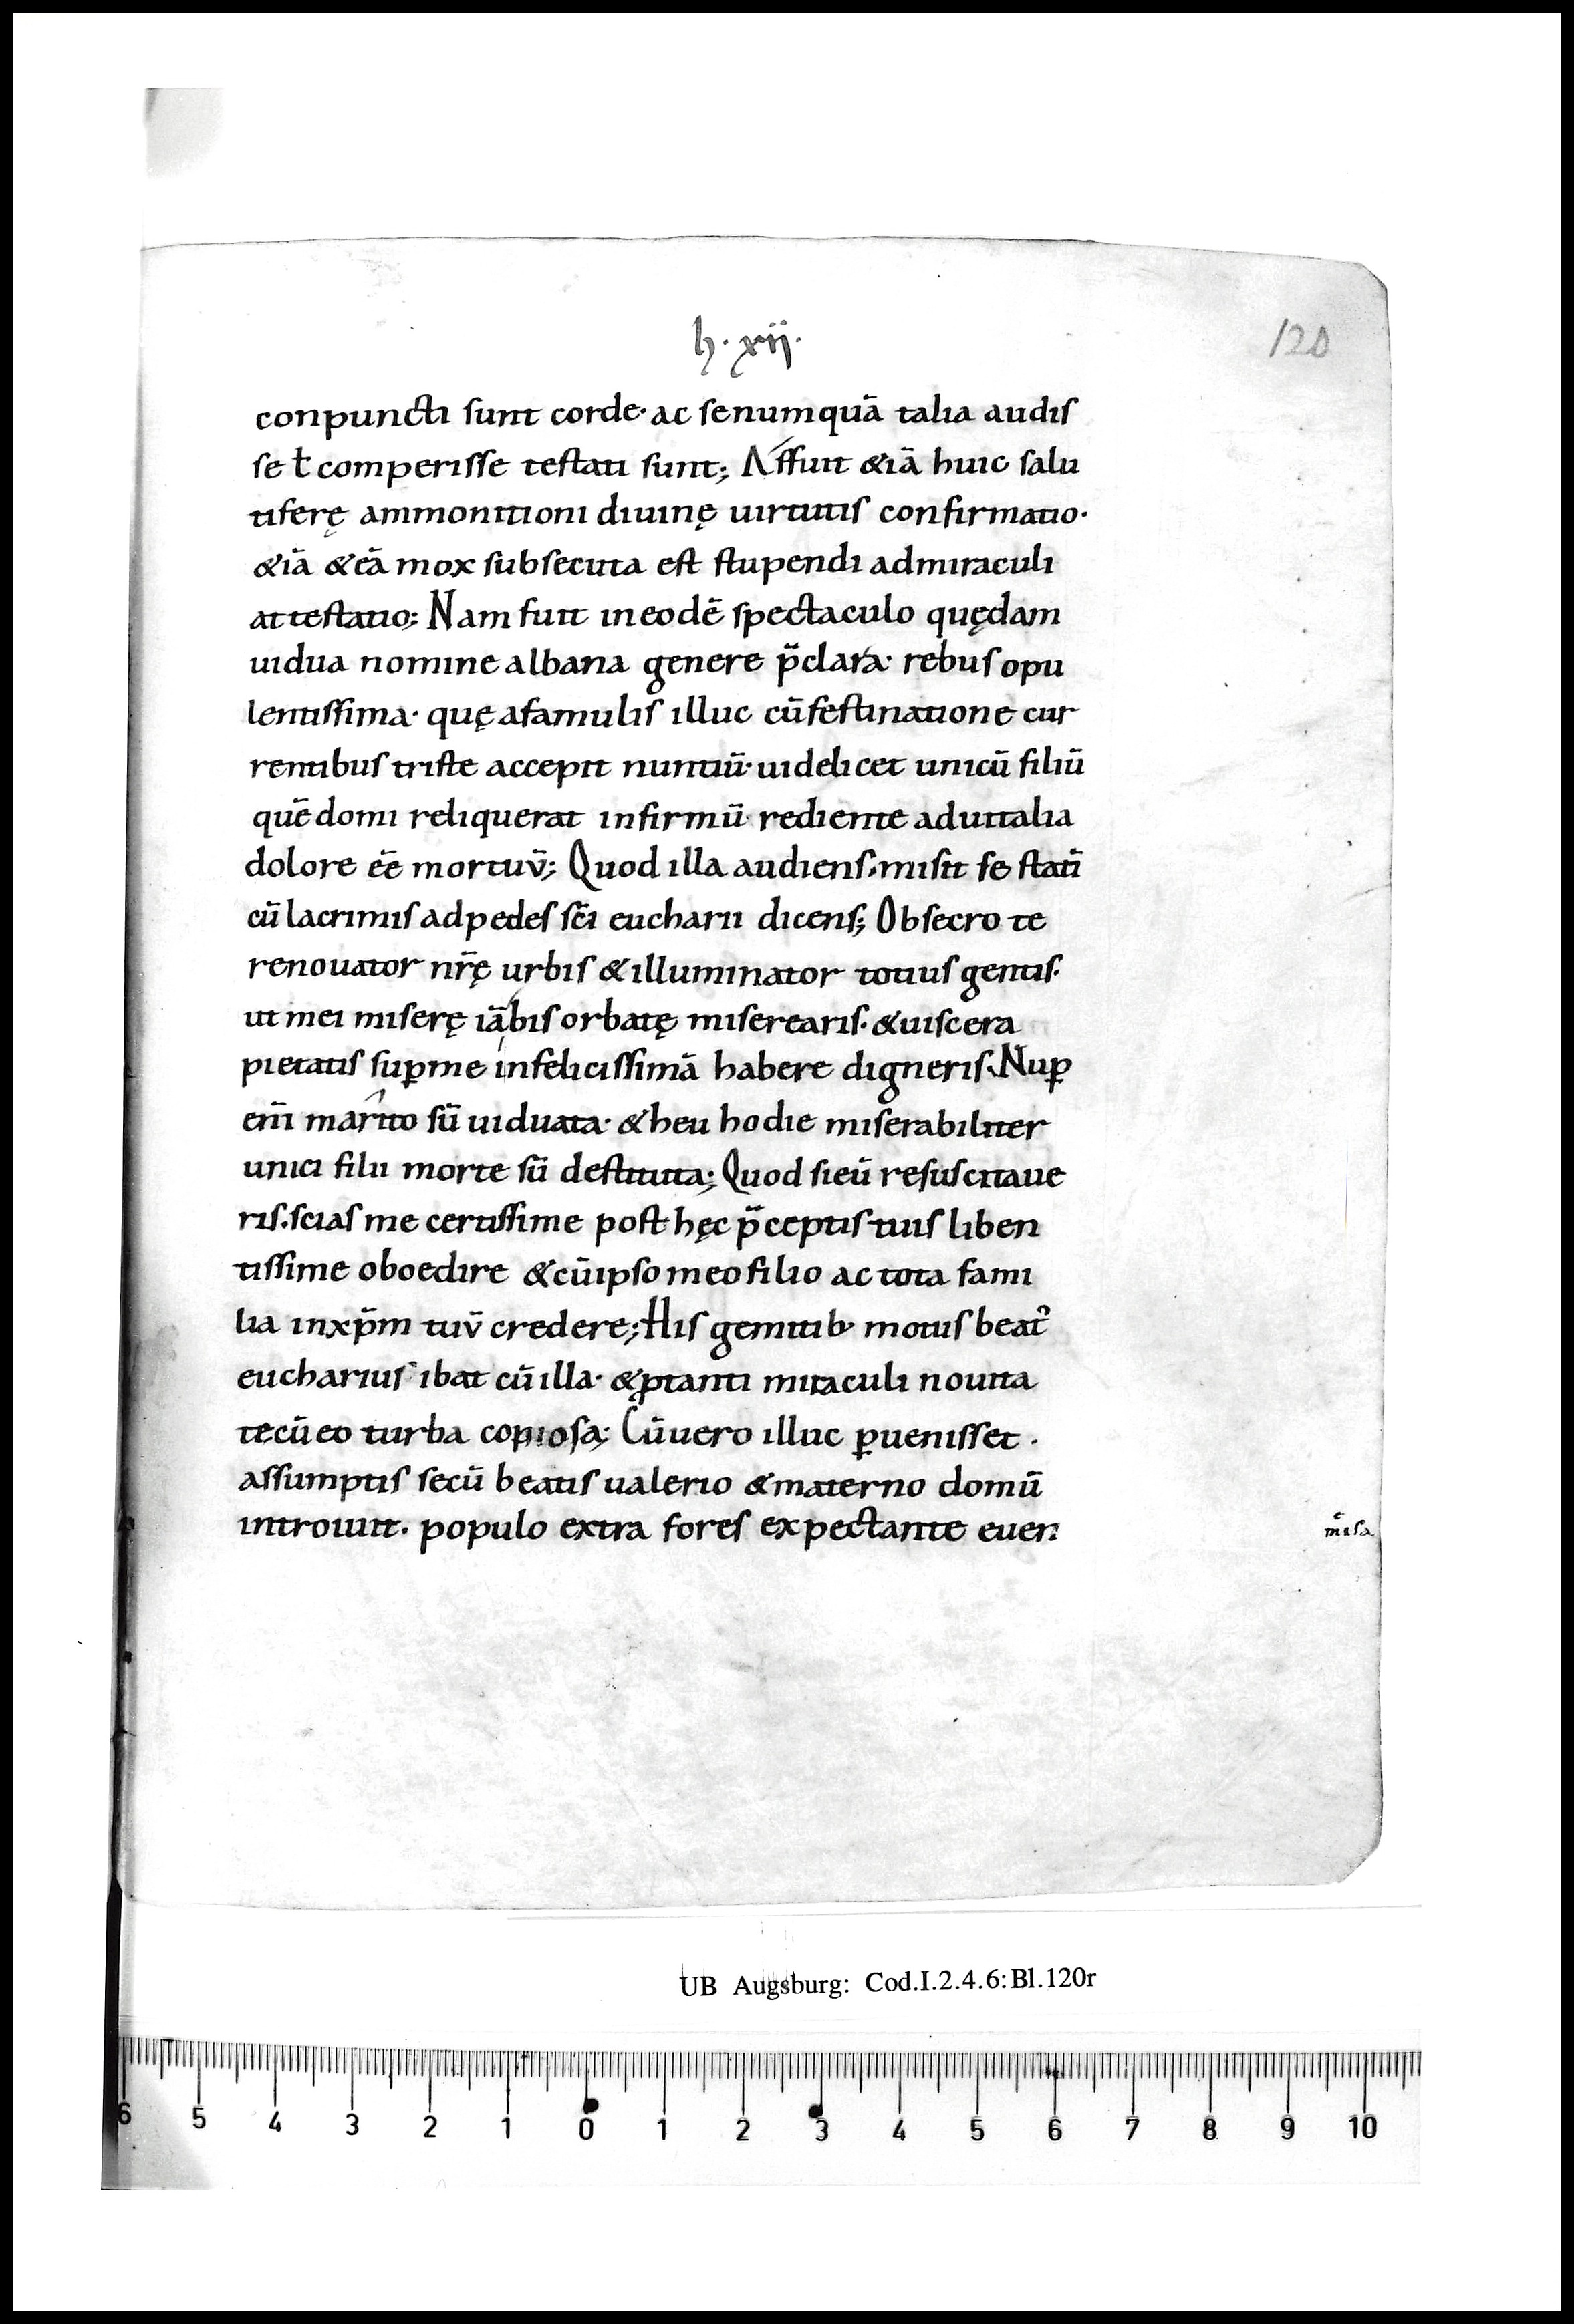 h. xii.
120
conpuncti sunt corde· ac se numquā talia audis
se ł comperisse testati sunt; Affuit &iā huic salu
tiferę ammonitioni diuinę uirtutis confirmatio·
&iā &eā mox subsecuta est stupendi admiraculi
attestatio; Nam fuit in eodē spectaculo quędam
uidua nomine albana genere p̄clara· rebus opu
lentissima· quę a famulis illuc cū festinatione cur
rentibus triste accepit nuntiū· uidelicet unicū filiū
quē domi reliquerat infirmū· rediente aduitalia
dolore eē mortuv̄; Quod illa audiens· misit se statī
cū lacrimis ad pedes sc̄i eucharii dicens; Obsecro te
renouator nr̄ę urbis & illuminator totius gentis·
ut mei miserę iā bis orbatę miserearis· & uiscera
pietatis suꝑ me infelicissimā habere digneris· Nuꝑ
eni̅ marito sū uiduata· & heu hodie miserabiliter
unici filii morte sū destituta; Quod si eū resuscitaue
ris· scias me certissime post hęc p̄ceptis tuis liben
tissime oboedire & cū ipso meo filio ac tota fami
lia in xp̄m tuv̄ credere; His gemitib· motus beat᾽
eucharius ibat cū illa· & ꝓ tanti miraculi nouita
te cū eo turba copiosa; Cū uero illuc ꝑuenisset·
assumptis secū beatis ualerio & materno domū
introiuit· populo extra fores expectante euen
UB Augsburg: Cod.I.2.4.6:Bl.120r
6 5 4 3 2 1 0 1 2 3 4 5 6 7 8 9 10